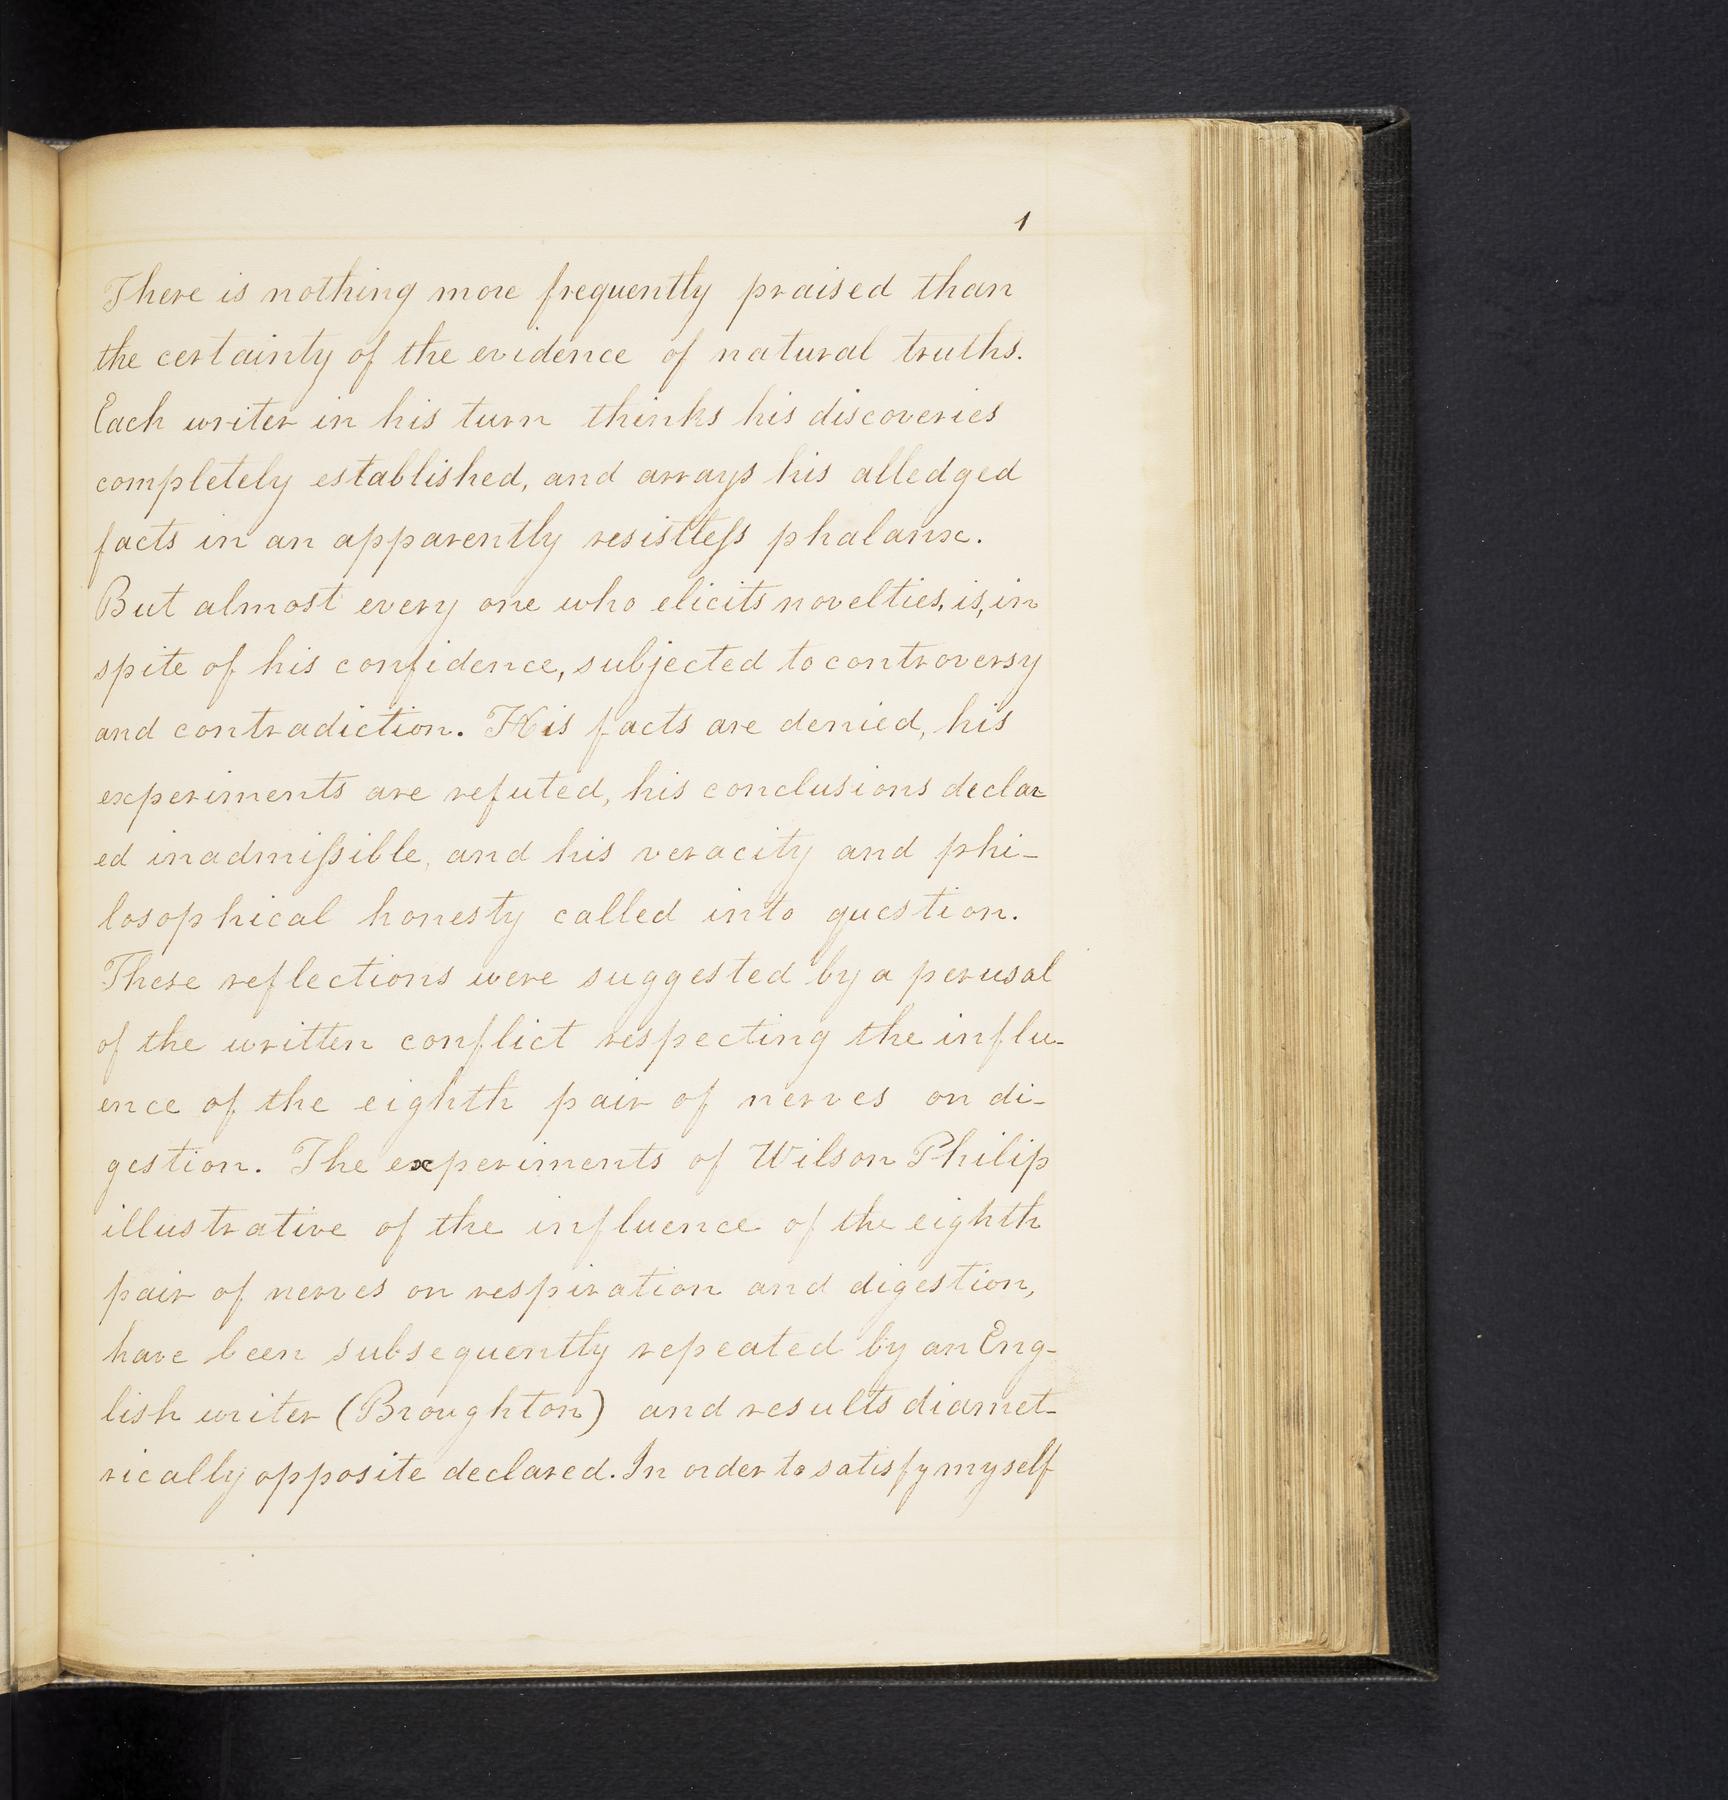 1
There is nothing more frequently praised than
the certainty of the evidence of natural truths.
Each writer in his turn thinks his discoveries
completely established, and arrays his alledged
facts in an apparently resistleſs phalanx.
But almost every one who elicits novelties, is, in
spite of his confidence, subjected to controversy
and contradiction. His facts are denied, his
experiments are refuted, his conclusions declar
ed inadmiſsible, and his veracity and phi-
losophical honesty called into question.
These reflections were suggested by a perusal
of the written conflict respecting the influ-
ence of the eighth pair of nerves on di-
gestion. The experiments of Wilson Philip
illustrative of the influence of the eighth
pair of nerves on respiration and digestion,
have been subsequently repeated by an Eng-
lish writer (Broughton) and results diamet-
rically opposite declared. In order to satisfy myself